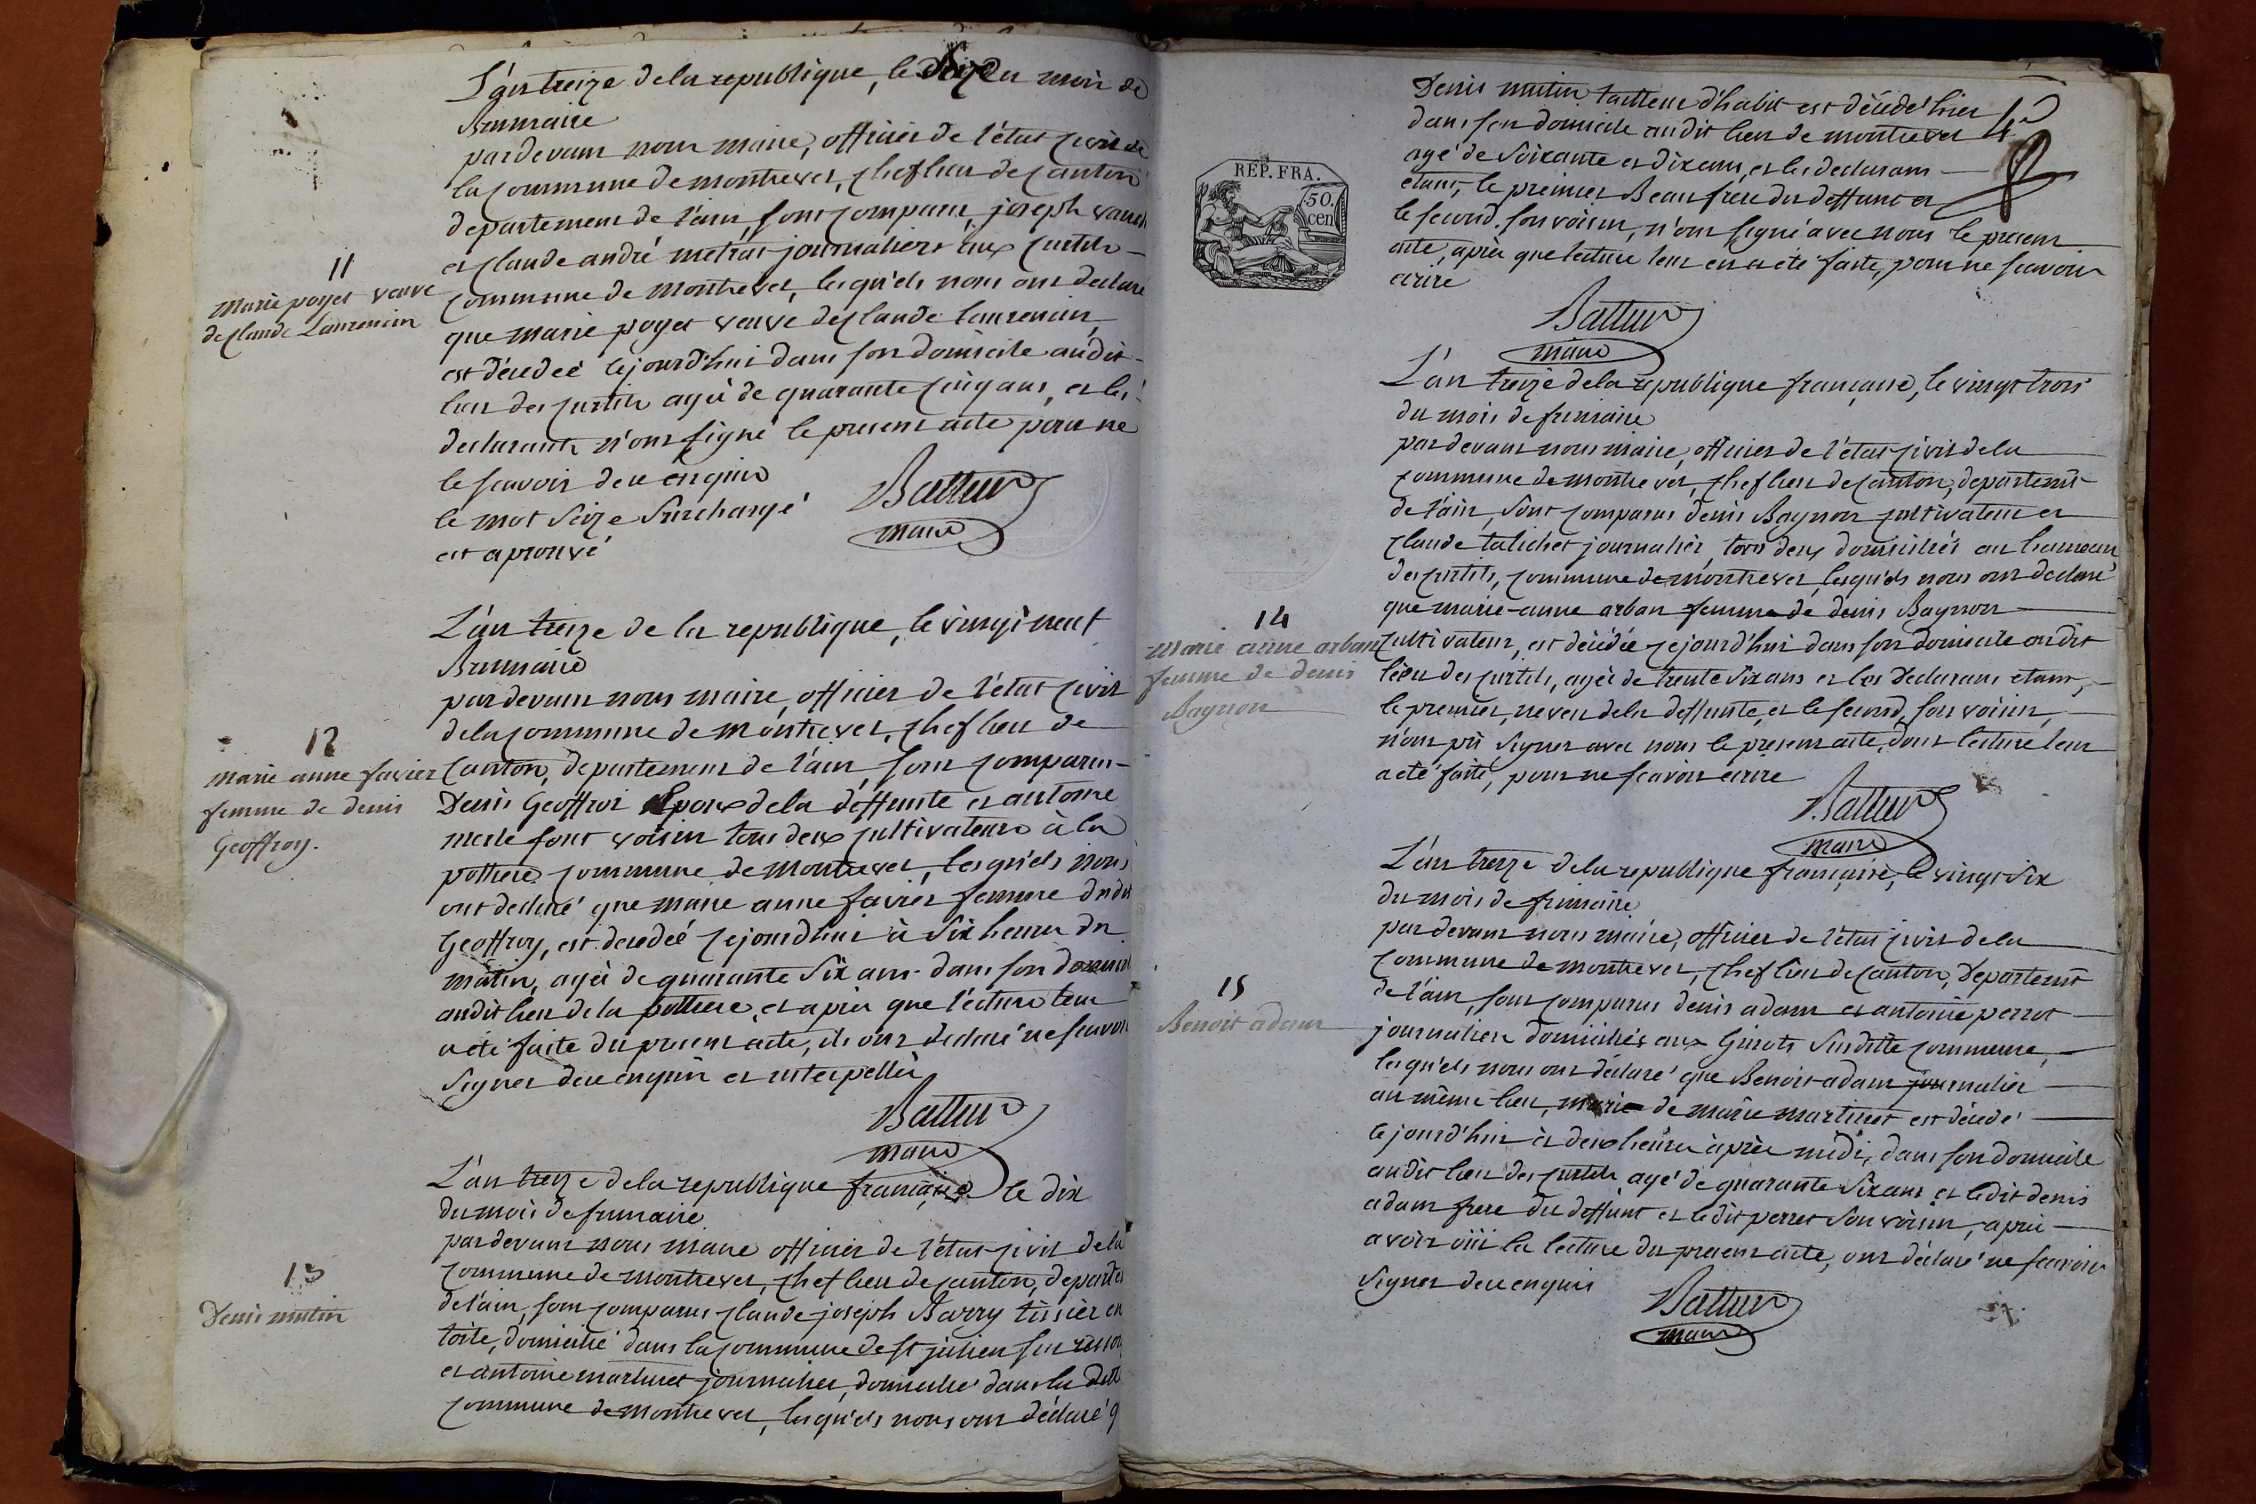 L'an treize de la republique, le Seize du mois de
Brumaire
pardevant nous maire, officier de l'état civil de
la commune de montrevel, chef lieu de canton
departement de l'ain, sont comparu, joseph
et claude andré metras journaliers aux curtils
11
marie poget veuve
de claude Laurencin
commune de montrevel, lesqu'els nous ont declaré
que marie poget veuve de claude laurencin,
est décedeé cejourd'hui dans son domicile au dit
lieu des curtils ageè de quarante cinq ans, et les
declarants n'ont signé le present acte pour ne
le scavoir de ce enquis
le mot Seize Surchargé
est aprouvé
maire
L'an treize de la republique, le vingt neuf
Brumaire
pardevant nous maire, officier de l'état civil
de la commune de montrevel, chef lieu de
12
marie anne favier
femme de denis
Geoffroy.
canton, departement de l'ain, sont comparus
Denis Geoffroi Epoux de la deffunte et antoine
merle sont voisin tous deux cultivateurs à la
commune de montrevel, lesqu'els nous
ont declaré que marie anne favier femme du dit
Geoffroy, est decedeé cejourdhui à Six heures du
matin, ageè de quarante Six ans dans son domicile
au dit lieu de la et après que lecture leur
a été faite du present acte, ils ont declaré ne scavoir
signer de ce enquis et interpellès
maire
L'an treize de la republique française le dix
du mois de frimaire
pardevant nous maire officier de l'état civil de la
13
Denis mutin
commune de montrevel, chef lieu de canton, departet
de l'ain, sont comparus claude joseph Barry tissier en
toile, domicilié dans la commune de st julien sur
et antoine martinet journalier, domicilié dans la dite
commune de montrevel, lesqu'els nous ont déclaré q
Denis mutin tailleur d'habit est décedé hier
dans son domicile au dit lieu de montrevel
agé de Soixante et dix ans, et les declarans
etant, le premier Beau frere du deffunt et
le second son voisin, n'ont signé avec nous le present
acte, après que lecture leur en a été faite, pour ne scavoir
ecrire
REP. FRA.
50.
cen
maire
L'an treize de la republique française, le vingt trois
du mois de frimaire
pardevant nous maire, officier de l'état civil de la
commune de montrevel, chef lieu de canton, departemt
de l'ain, sont comparus denis Bagnon cultivateur et
claude talichet journalier, tous deux domiciliés au hameau
des curtils, commune de montrevel, lesqu'els nous ont declaré
que marie-anne arban femme de denis Bagnon
14
marie anne arban
femme de denis
Bagnon
cultivateur, est décédée cejourd'hui dans son domicile au dit
lieu des curtils, ageè de trente Six ans et les Declarans etant,
le premier, neveu de la deffunte, et le second, son voisin,
n'ont pû signer avec nous le present acte, dont lecture leur
a eté faite, pour ne scavoir ecrire
maire
L'an treize de la republique française, le vingt Six
du mois de frimaire
pardevant nous maire, officier de l'état civil de la
commune de montrevel, chef lieu de canton, Departemt
15
Benoit adam
de l'ain, sont comparus denis adam et antoine perret
journaliers domiciliés aux Susdite commune,
lesqu'els nous ont déclaré que Benoit adam journalier
au même lieu, marie de marie martinet est décedé
cejourd'hui à deux heures après midi, dans son domicile
au dit lieu des curtils agé de quarante Six ans et le dit denis
adam frere du deffunt et le dit perret son voisin, après
avoir oüi la lecture du present acte, ont déclaré ne scavoir
signer de ce enquis
maire